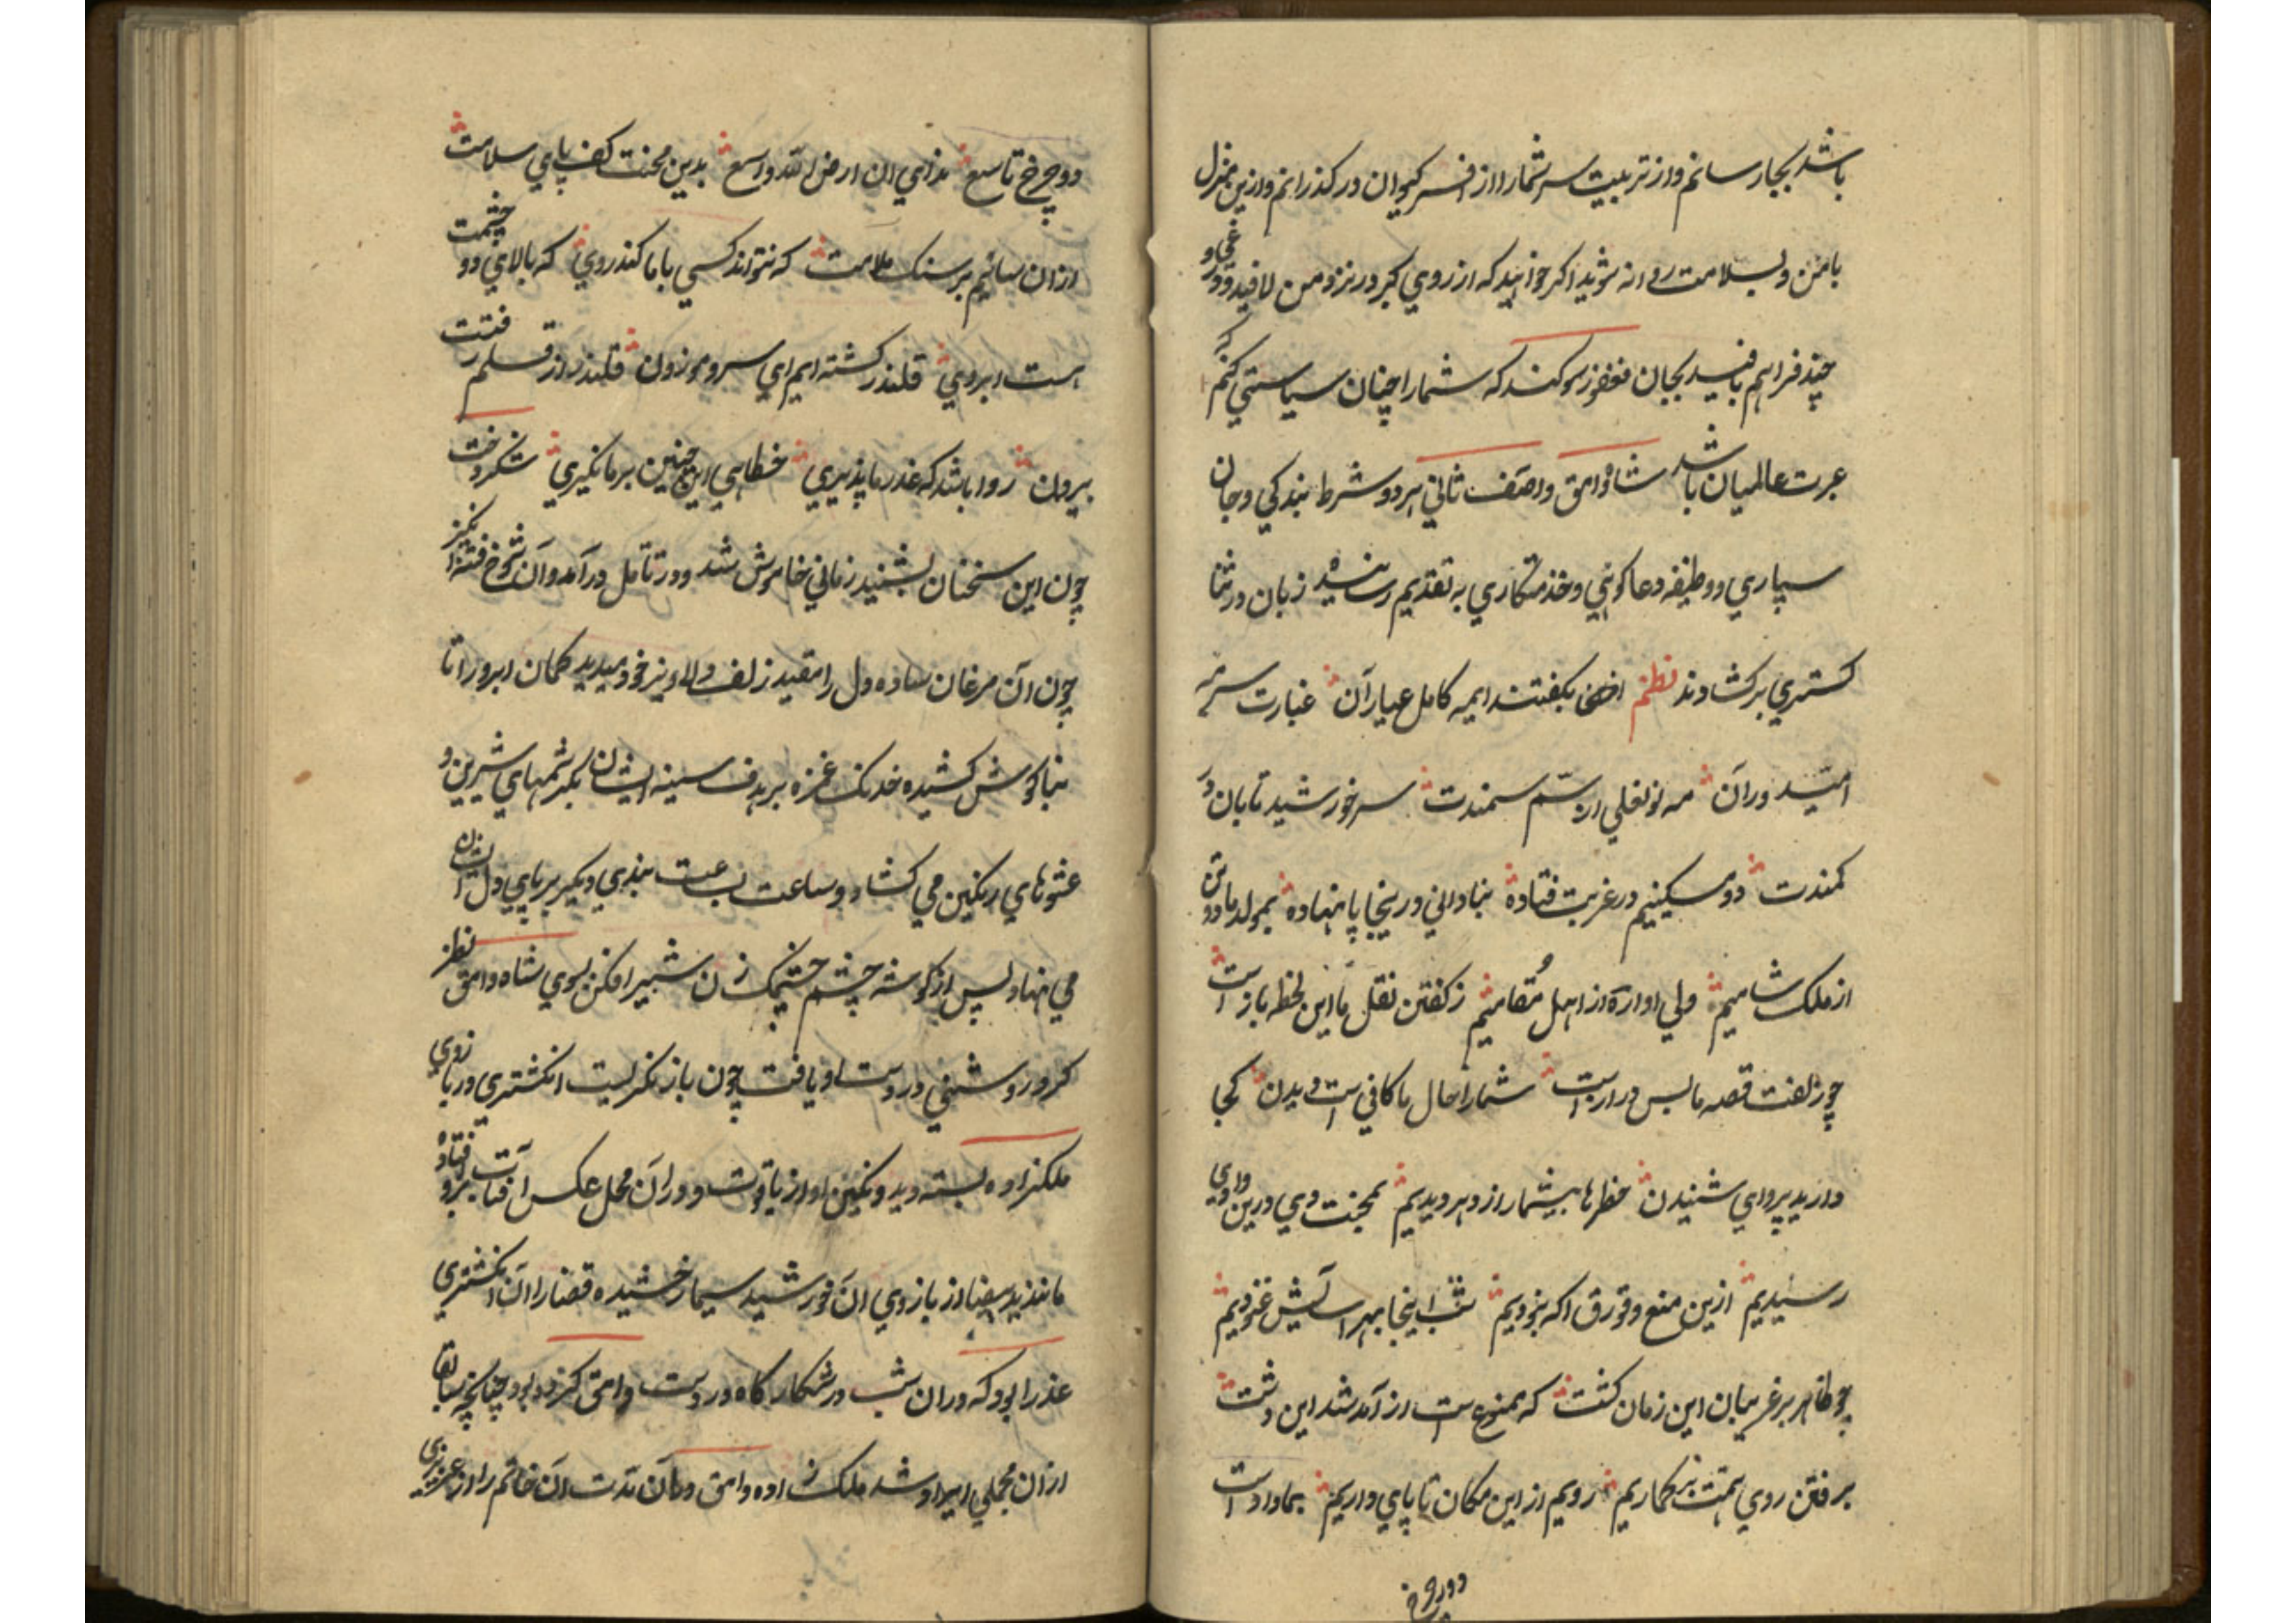 باشد بجا رسانم و از تربیت سر شما را از افسر کیوان در کذرانم و ازین منزل
بامن و بسلامت روانه شوید اکر خواهید که از روی کبر و رنز و من لافید و دروغی
چند فراهم بافید بجان فغفور سوکند که شما را چنان سیاستی کنم که
عبرت عالمیان باشد شاه وامق و اصف ثانی هر دو شرط بندکی و جان
سپاری و وظیفه دعاکویی و خدمتکاری به تقدیم رسانیده زبان در ثنا
کستری برکشادند نظم بکفتند ایمه کامل عیاران غبارت سرمه
امید دوران مه نو نعلی از سم سمندت سر خورشید تابان در
کمندت دو مسکینیم در غربت فتاده بنادانی درینجا پا نهاده بمولد ما دو تن
از ملک شامیم ولی اواره از اهل مقامیم ز کفتن نقل ما این لحظه باز است
چو زلفت قصه ما بس دراز است شما را حال ما کافی است دیدن کجا
دارید پروای شنیدن خطرها بیشمار از دهر دیدیم بمحنت دی درین وادی
رسیدیم ازین منع و قورق اکه نبودیم شب اینجا بهر اسایش غنودیم
چو ظاهر بر غریبان این زمان کشت که ممنوع است از آمد شد این دشت
برفتن روی همت برکماریم رویم از این مکان تا پای داریم بما داد است
دور چرخ
دور چرخ تاسع ندای ان ارض الله واسع بدین محنت کف پای سلامت
ازان سائیم بر سنک ملامت که نتواند کسی با ما کند روی که بالای دو چشمت
است ابروی قلندر کشته ایم ای سرو موزون قلندر از قلم رفتت
بیرون روا باشد که عذر ما پذیری خطاهی این چنین بر ما نکیری شکردخت
چون این سخنان بشنید زمانی خاموش شد و در تامل درآمد و آن شوخ فتنه انکیز
چون آن مرغان ساده دل را مقید زلف دلاویز خود میدید کمان ابرو را تا
بناکوش کشیده خدنک غمزه بر هدف سینه ایشان بکرشمهای شیرین و
عشوهای رنکین می کشاد و ساعت بساعت بندی دیکر بر پای دل ایشان
می نهاد پس از کوشه چشم چشمک زن شیر افکن بسوی شاه وامق نظر
کرد روشنی در دست او یافت چون باز نکریست انکشتری در بازوی
ملکزاده بسته دید و نکین او از یاقوت و در آن محل عکس آفتاب برو افتاده
مانند ید بیضا از بازوی ان خورشید سیما درخشیده قضا را ان انکشتری
عذرا بود که دران شب در شکارکاه در دست وامق کرده بود چنانچه سابقا
ازان مجملی ایراد شد ملک زاده وامق دران مدت ان خاتم را از عزیزی